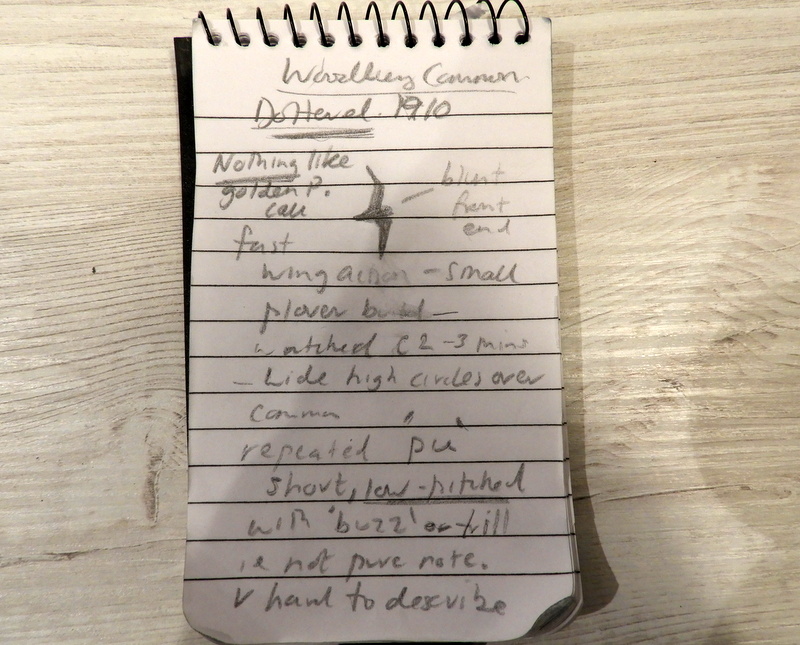 Woodbury Common
Dotterel. 1910
Nothing like
golden P.
call
blunt
front
end
fast
wing action - small
plover build -
watched C 2-3 mins
- wide high circles over
common
repeated "
short, low-pitched
with 'buzz' or trill
ie not pure note.
V hard to describe